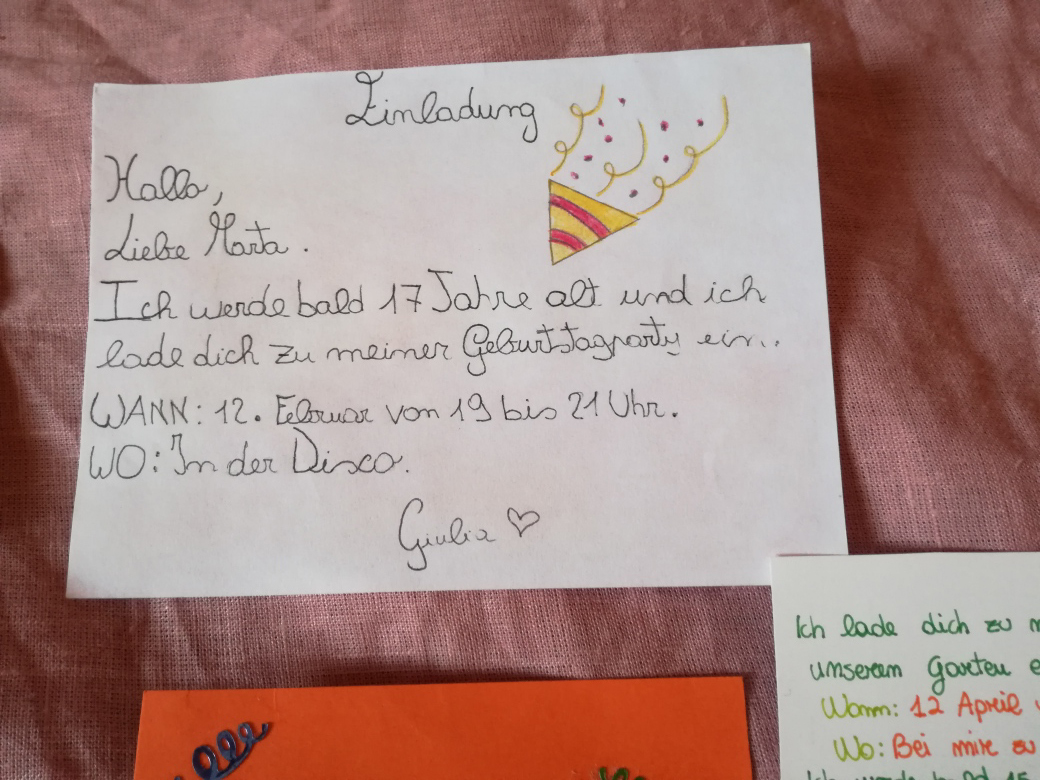 Einladung
Hallo,
Liebe Marta.
Ich werde bald 17 Jahre alt und ich
lade dich zu meiner Geburtstagparty ein..
WANN: 12. Februar von 19 bis 21 Uhr.
WO: In der Disco.
Giulia ♡
Ich lade dich zu
unserem Garten
Wann: 12 April
Wo: Bei mir zu